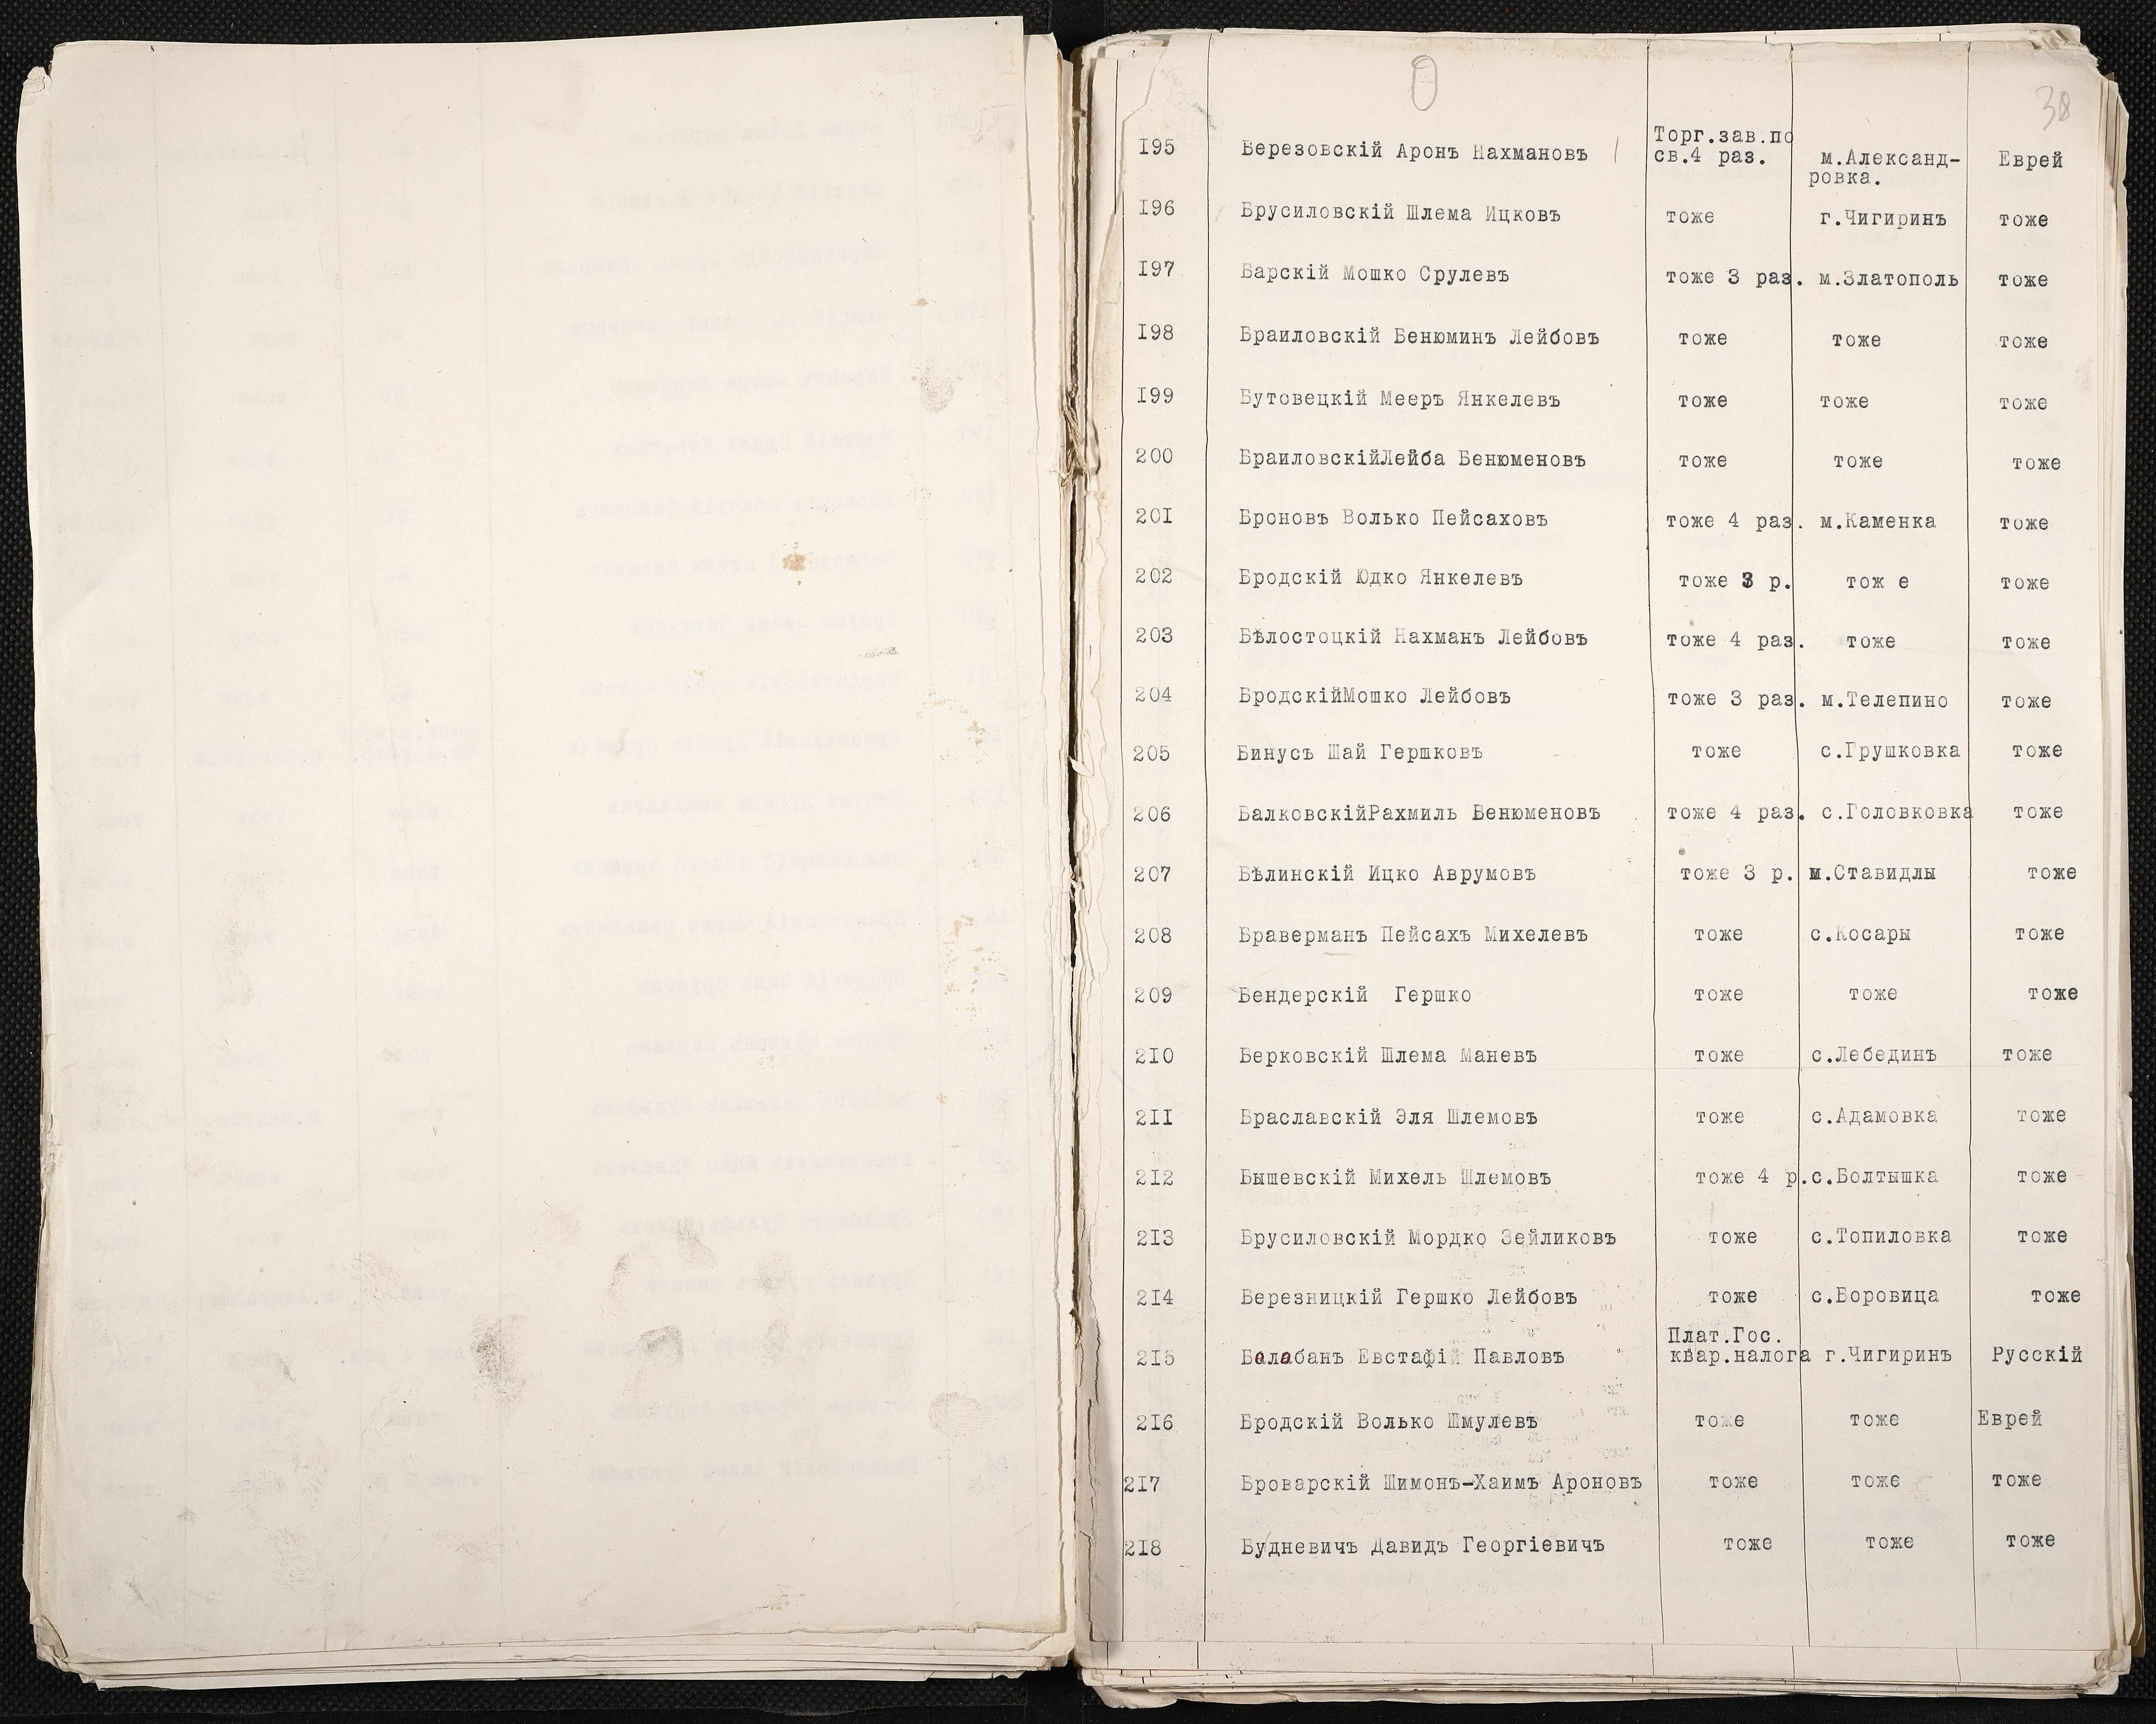 38
195 Березовскій Аронъ Нахмановъ Торг.зав.по св.4 раз. м.Александ-ровка. Еврей
196 Брусиловскій Шлема Ицковъ тоже г.Чигиринъ тоже
197 Барскій Мошко Срулевъ тоже 3 раз. м.Златополь тоже
198 Браиловскій Бенюминъ Лейбовъ тоже тоже тоже
199 Бутовецкій Мееръ Янкелевъ тоже тоже тоже
200 БраиловскійЛейба Бенюменовъ тоже тоже тоже
201 Броновъ Волько Пейсаховъ тоже 4 раз. м.Каменка тоже
202 Бродскій Юдко Янкелевъ тоже 3 р. тож е тоже
203 Бѣлостоцкій Нахманъ Лейбовъ тоже 4 раз. тоже тоже
204 БродскійМошко Лейбовъ тоже 3 раз. м.Телепино тоже
205 Бинусъ Шай Гершковъ тоже с.Грушковка тоже
206 БалковскійРахмиль Бенюменовъ тоже 4 раз. с.Головковка тоже
207 Бѣлинскій Ицко Аврумовъ тоже 3 р. м.Ставидлы тоже
208 Браверманъ Пейсахъ Михелевъ тоже с.Косары тоже
209 Бендерскій Гершко тоже тоже тоже
210 Берковскій Шлема Маневъ тоже с.Лебединъ тоже
211 Браславскій Эля Шлемовъ тоже с.Адамовка тоже
212 Бышевскій Михель Шлемовъ тоже 4 р. с.Болтышка тоже
213 Брусиловскій Мордко Зейликовъ тоже с.Топиловка тоже
214 Березницкій Гершко Лейбовъ тоже с.Боровица тоже
215 Балабанъ Евстафій Павловъ Плат.Гос. квар.налога г.Чигиринъ Русскій
216 Бродскій Волько Шмулевъ тоже тоже Еврей
217 Броварскій Шимонъ-Хаимъ Ароновъ тоже тоже тоже
218 Будневичъ Давидъ Георгіевичъ тоже тоже тоже